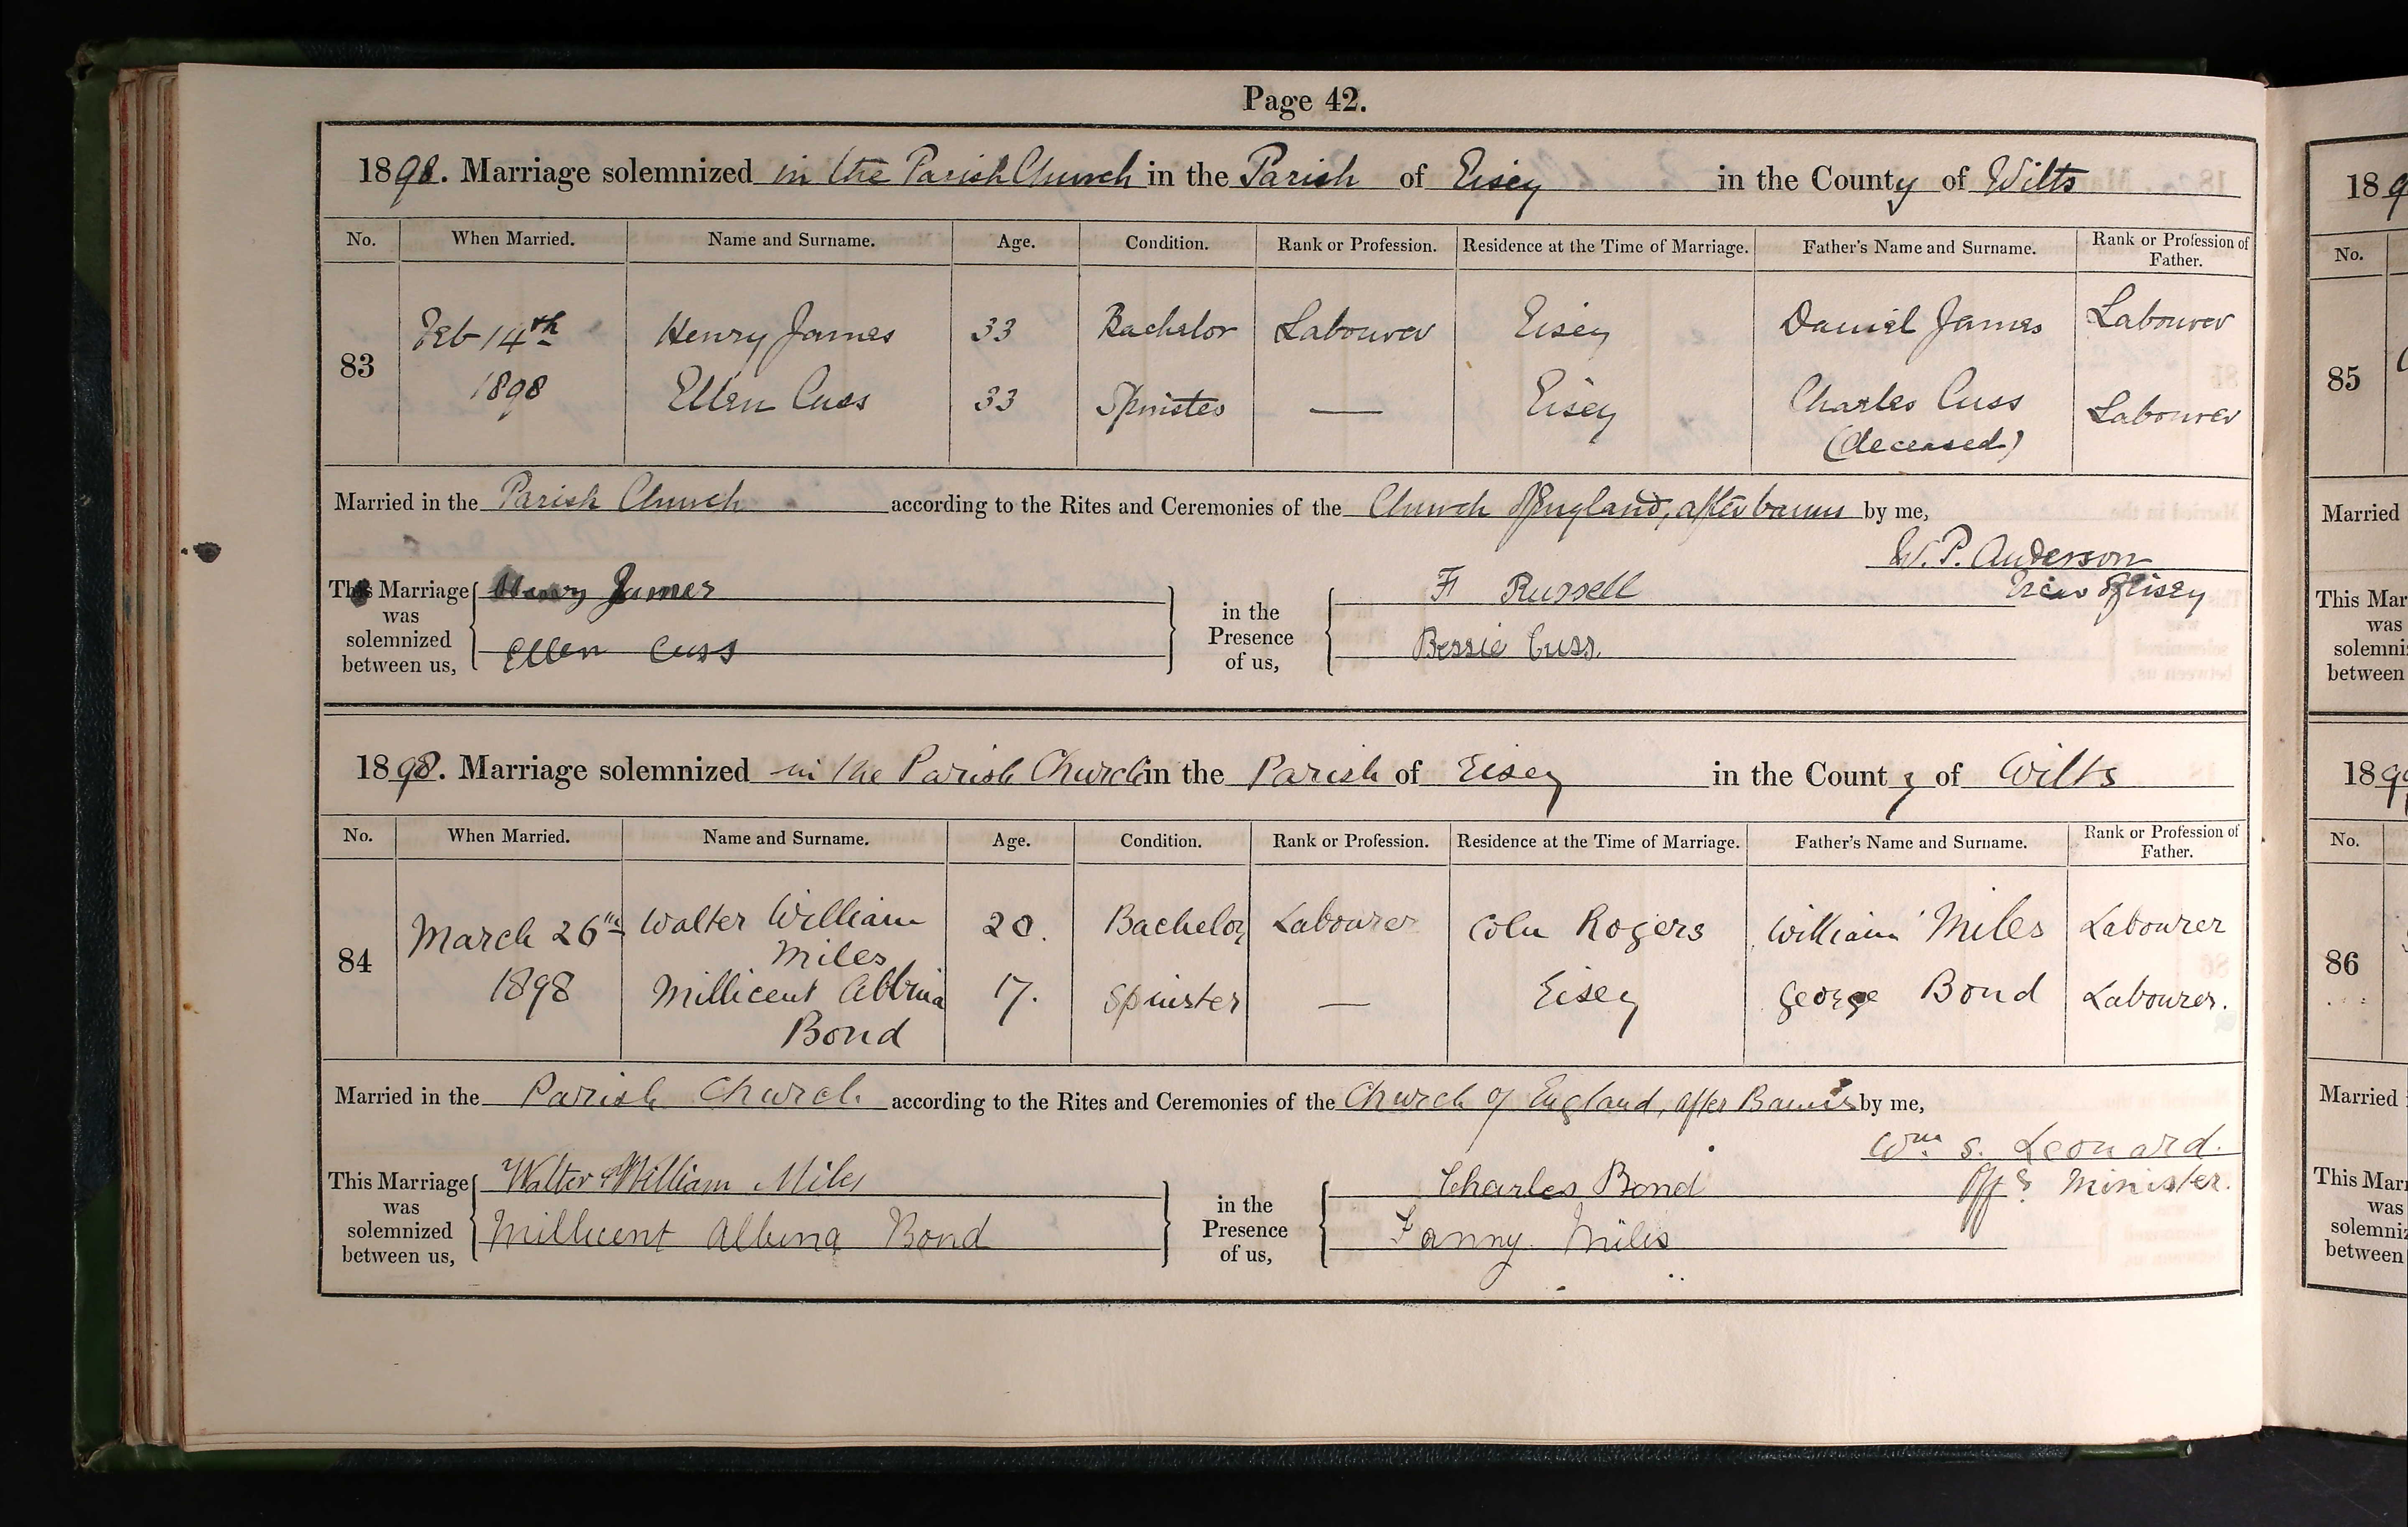 Page 42.
1898. Marriage solemnized in the Parish Church in the Parish of Eisey in the County of Wilts
No. When Married. Name and Surname. Age. Condition. Rank or Profession. Residence at the Time of Marriage. Father's Name and Surname. Rank or Profession of Father.
83 Feb 14th Henry James 33 Bachelor Labourer Eisey Daniel James Labourer
1898 Ellen Cuss 33 Spinster — Eisey Charles Cuss Labourer
(deceased)
Married in the Parish Church according to the Rites and Ceremonies of the Church of England, after banns by me,
W. P. Anderson
Vicar of Eisey
This Marriage was solemnized between us, Henry James in the Presence of us, F Russell
Ellen Cuss Bessie Cuss.
1898. Marriage solemnized in the Parish Church in the Parish of Eisey in the County of Wilts
No. When Married. Name and Surname. Age. Condition. Rank or Profession. Residence at the Time of Marriage. Father's Name and Surname. Rank or Profession of Father.
84 March 26th Walter William Miles 20. Bachelor Labourer Coln Rogers William Miles Labourer
1898 Millicent Albina Bond 17. Spinster — Eisey George Bond Labourer.
Married in the Parish Church according to the Rites and Ceremonies of the Church of England, after Banns by me,
Wm S. Leonard.
Offg Minister.
This Marriage was solemnized between us, Walter William Miles in the Presence of us, Charles Bond
Millicent Albina Bond Fanny Miles
189
No.
85
Married
This Mar
was
solemni
between
189
No.
86
Married
This Marr
was
solemniz
between